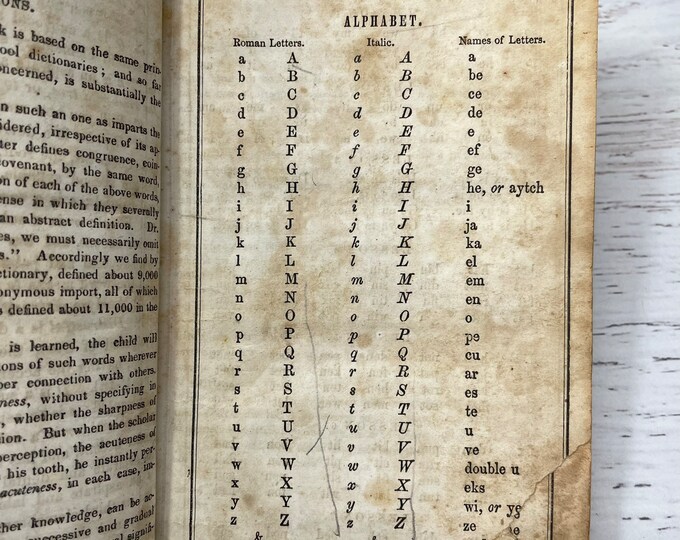 ONS.
k is based on the same prin-
ool dictionaries; and so far
oncerned, is substantially the
n such an one as imparts the
idered, irrespective of its ap-
ter defines congruence, coin-
ovenant, by the same word,
on of each of the above words,
ense in which they severally
an abstract definition. Dr.
es, we must necessarily omit
s." Accordingly we find by
ctionary, defined about 9,000
nonymous import, all of which
s defined about 11,000 in the
is learned, the child will
ions of such words wherever
per connection with others.
ness, without specifying in
, whether the sharpness of
ion. But when the scholar
perception, the acuteness of
his tooth, he instantly per-
acuteness, in each case, im-
her knowledge, can be ac-
uccessive and gradual
ALPHABET.
Roman Letters. Italic. Names of Letters.
a A a A a
b B b B be
c C c C ce
d D d D de
e E e E e
f F f F ef
g G g G ge
h H h H he, or aytch
i I i I i
j J j J ja
k K k K ka
l L l L el
m M m M em
n N n N en
o O o O o
p P p P pe
q Q q Q cu
r R r R ar
s S s S es
t T t T te
u U u U u
v V v V ve
w W w W double u
x X x X eks
y Y y Y wi, or ye
z Z z Z ze